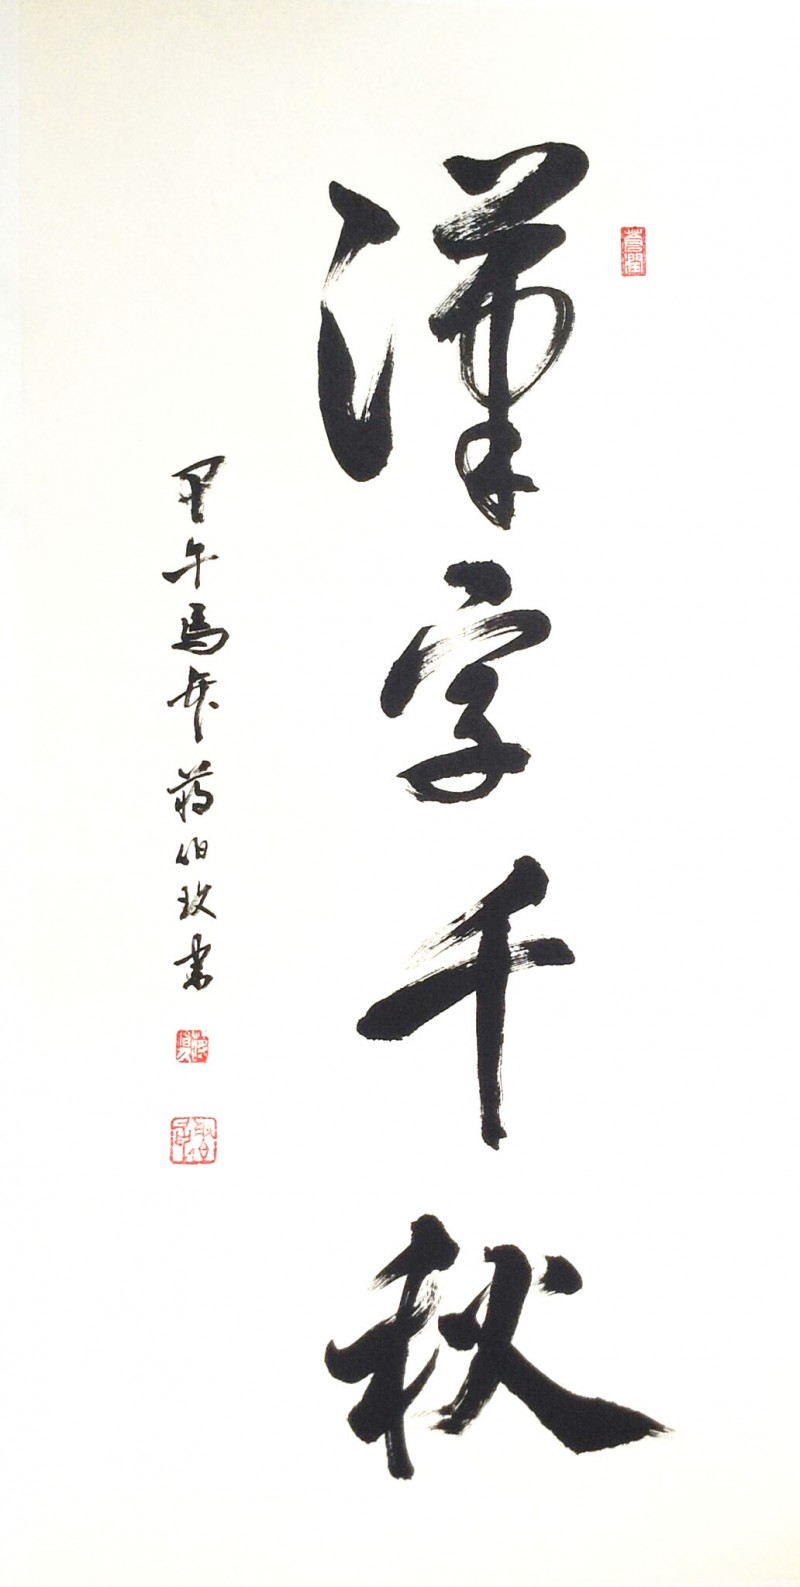 漢字千秋
甲午馬年蔣伯玫書